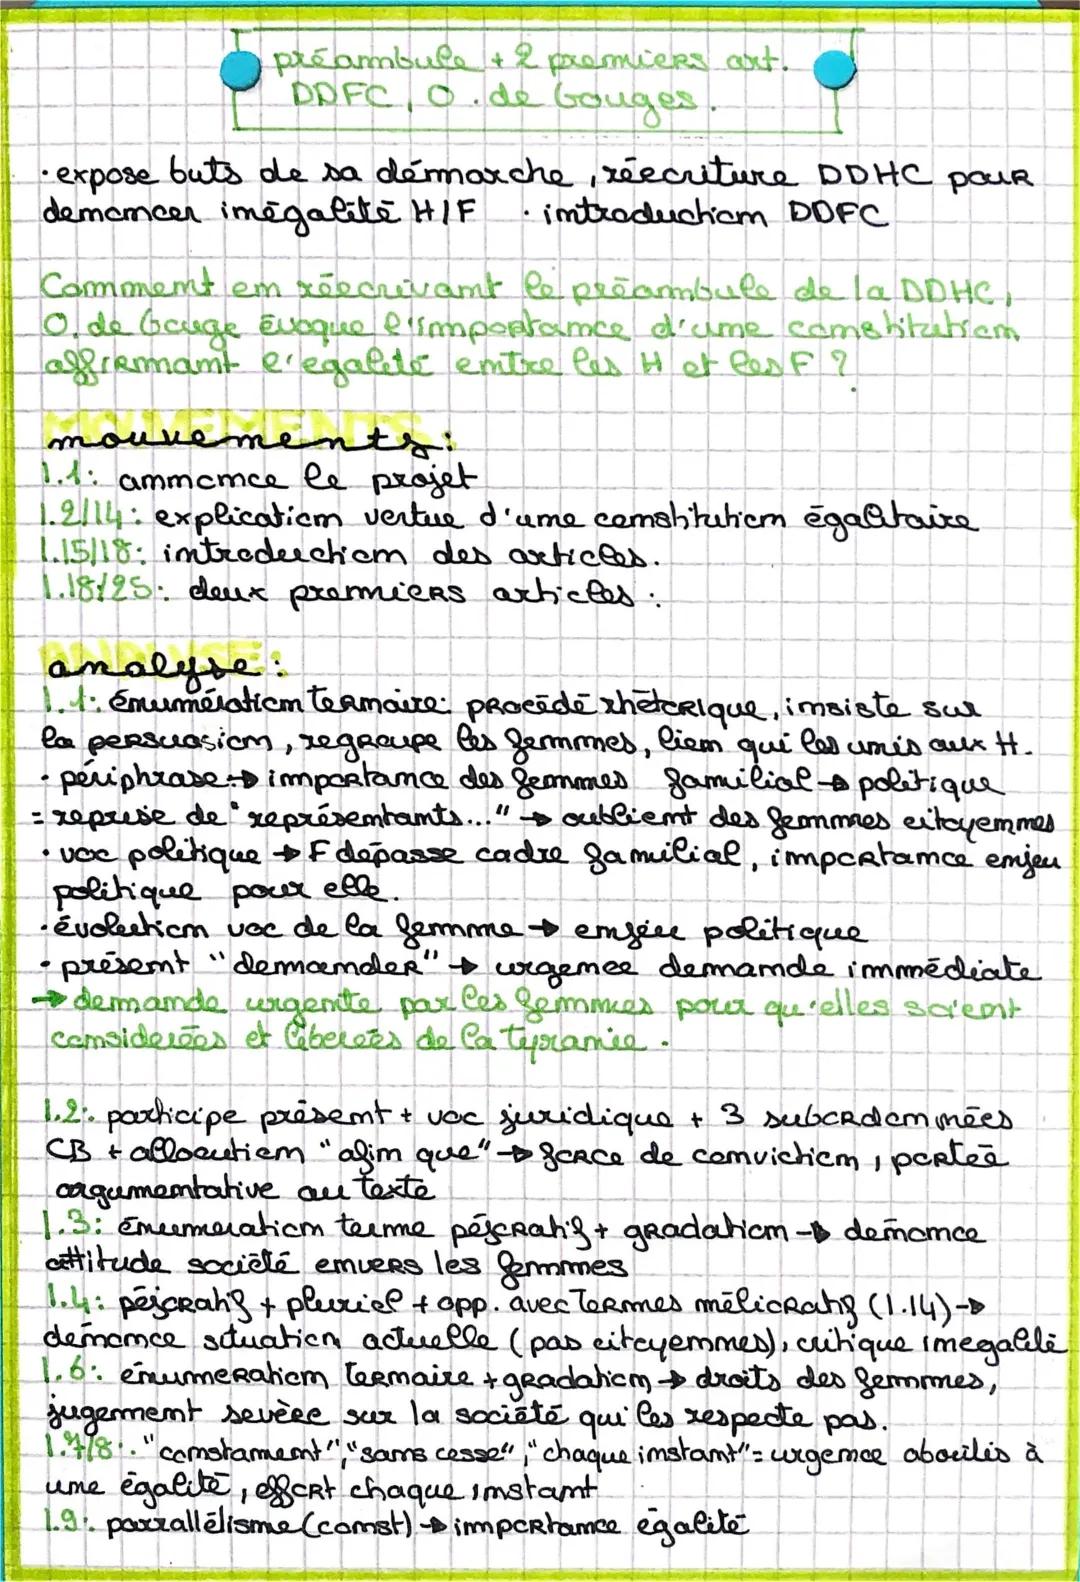 préambule + 2 premiers art.
DDFC, O. de Gouges.
• expose buts de sa démarche, réecriture DDHC pour
denoncer inégalité H/F • introduction DDFC
Comment en réécrivant le préambule de la DDHC,
O. de Gouge évoque l'importance d'une constitution
affirmant l'egalité entre les H et les F ?
MOUVEMENTS
mouvements:
l.1: annonce le projet
l.2/14: explication vertue d'une constitution égalitaire
l.15/18: introduction des articles.
l.18/25: deux premiers articles:
ANALYSE:
analyse:
l.1: énumération ternaire: procédé rhétorique, insiste sur
la persuasion, regroupe les femmes, lien qui les unis aux H.
• périphrase: → importance des femmes familial → politique
= reprise de "représentants..." → oublient des femmes citoyennes
• voc politique → F dépasse cadre familial, importance enjeu
politique pour elle.
• évolution voc de la femme → enjeu politique
• présent "demander" → urgence demande immédiate
→ demande urgente par les femmes pour qu'elles soient
considerées et liberées de la tyrannie.
l.2: participe présent + voc juridique + 3 subordonnées
CB + allocution "afin que" → force de conviction, portée
argumentative au texte
l.3: énumeration terme péjoratif + gradation → dénonce
attitude société envers les femmes
l.4: péjoratif + pluriel + opp. avec termes mélioratif (l.14) →
dénonce situation actuelle (pas citoyennes), critique inegalité
l.6: énumeration ternaire + gradation → droits des femmes,
jugement sevère sur la société qui les respecte pas.
l.7/8: "constamment", "sans cesse", "chaque instant" = urgence aboutis à
une égalité, effort chaque instant
l.9: parrallélisme (const) → importance égalité